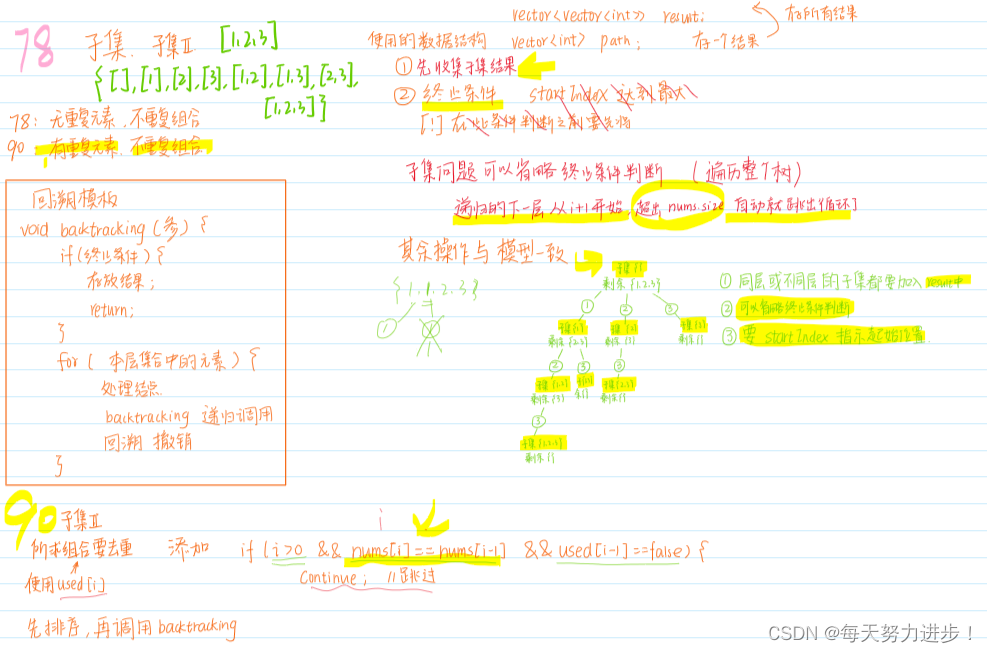 78 子集. 子集Ⅱ [1,2,3]
{[],[1],[2],[3],[1,2],[1,3],[2,3],
[1,2,3]}
78: 无重复元素, 不重复组合
90: 有重复元素, 不重复组合
vector<vector<int>> result; 存所有结果
使用的数据结构 vector<int> path; 存一个结果
① 先收集子集结果
② 终止条件 startIndex 达到最大
子集问题可以省略终止条件判断 (遍历整个树)
递归的下一层从i+1开始, 超出 nums.size 自动就跳出循环了
回溯模板
void backtracking(参) {
if(终止条件) {
存放结果;
return;
}
for( 本层集合中的元素) {
处理结点
backtracking 递归调用
回溯 撤销
}
其余操作与模型一致
{1.1.2.3}
①
子集{}
剩余{1.2.3}
① ② ③
剩余{2,3} 剩余{3} 剩余{}
② ③ ③
剩余{3} 剩余{}
③
剩余{}
① 同层或不同层的子集都要加入 result中
② 可以省略终止条件判断
③ 要 startIndex 指示起始位置.
90 子集Ⅱ
i
所求组合要去重 添加 if (i>0 && nums[i]==nums[i-1] && used[i-1]==false) {
使用used[i] Continue; //跳过
先排序,再调用backtracking
CSDN @每天努力进步！